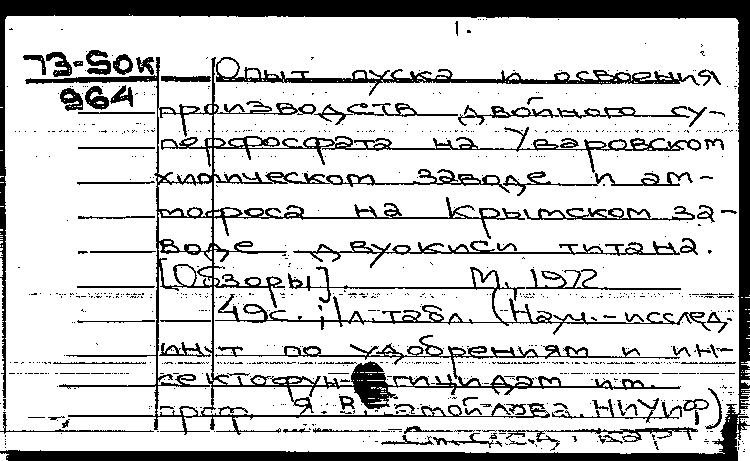 1.
73-5ОК
964
Опыт пуска и освоения
производств двойного су-
перфосфата на Уваровском
химическом заводе и ам-
мофоса на Крымском за-
воде двуокиси титана.
[Обзоры]. М., 1972
49с.; 1 л. табл. (Науч.-исслед.
инт по удобрениям и ин-
сектофунгицидам им.
проф. Я. В. Самойлова. НИУИФ)
См. след. карт